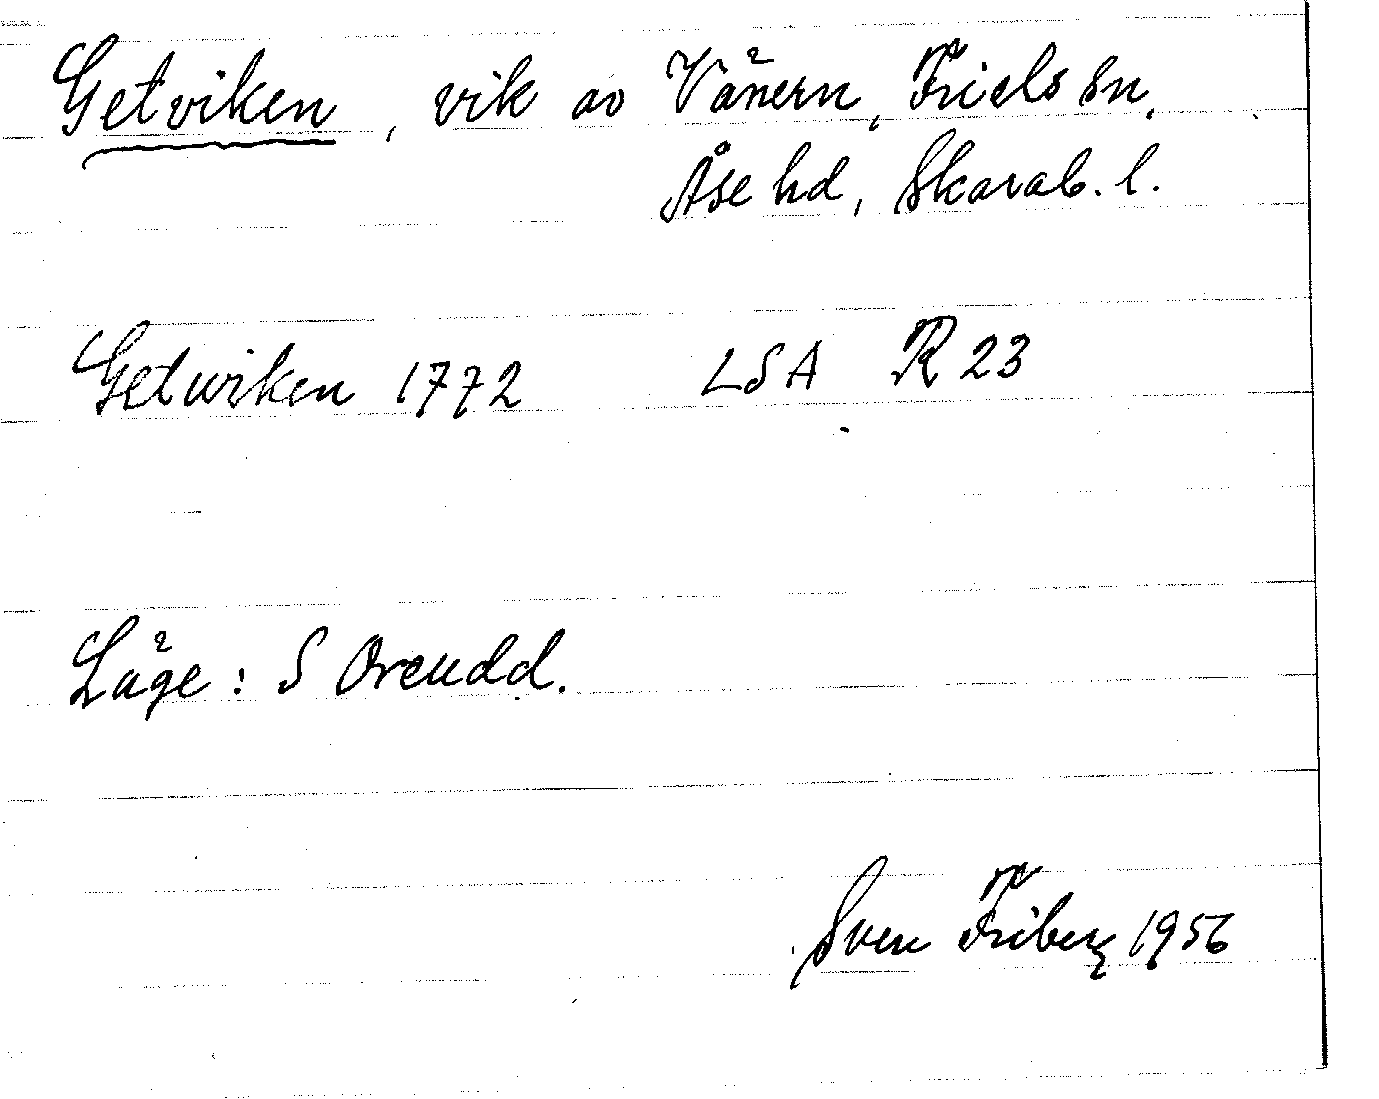 Getviken, vik av Vänern, Friels sn,
Åse hd, Skarab. l.
Getwiken 1772 LSA R 23
Läge: S Oreudd.
Sven Friberg 1956